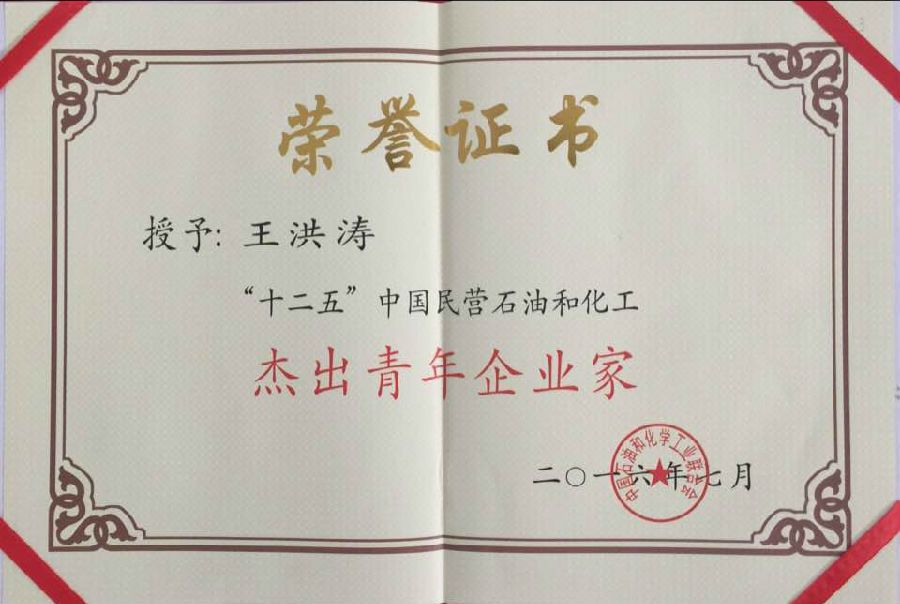 荣誉证书
授予: 王洪涛
“十二五”中国民营石油和化工
杰出青年企业家
二〇一六年七月
中国石油和化学工业联合会